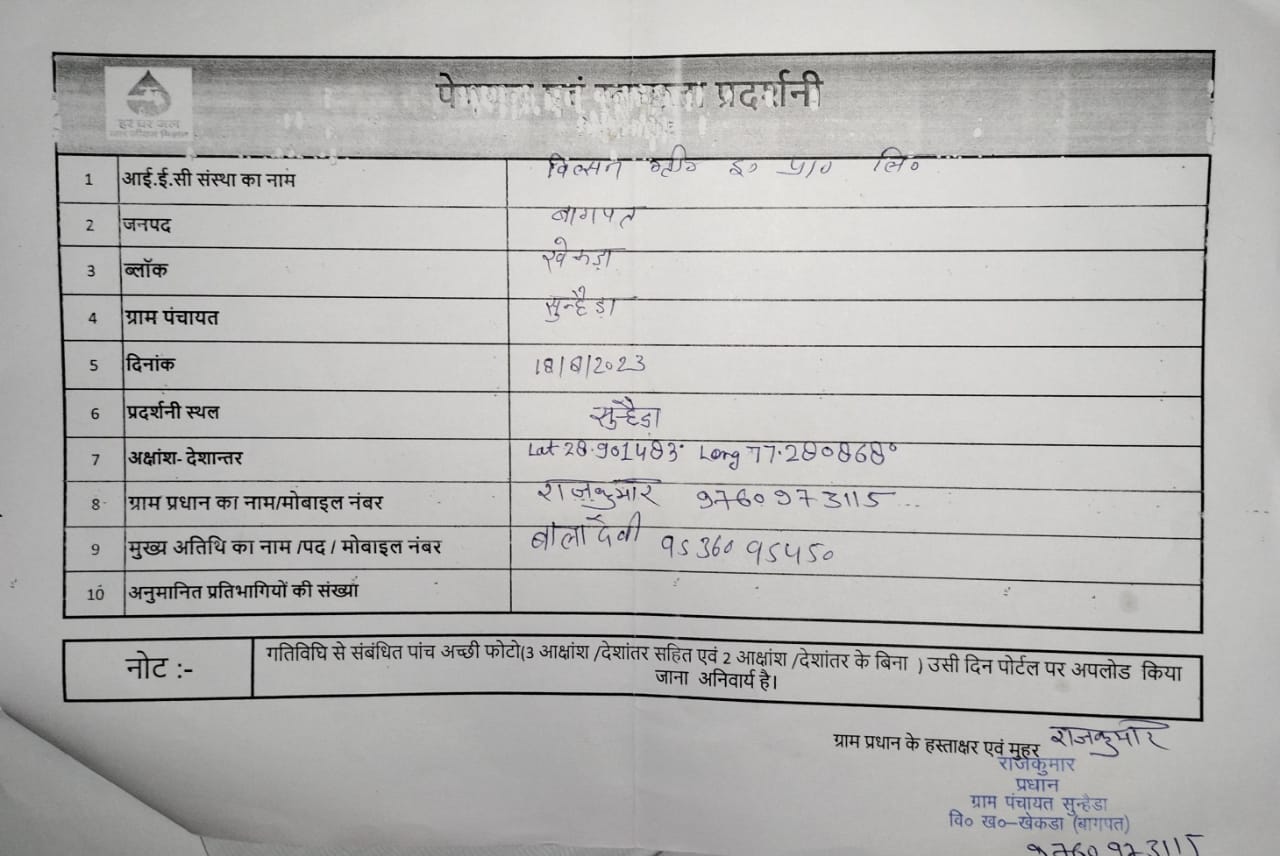 हर घर जल
जल जीवन मिशन
एवं प्रदर्शनी
1 आई.ई.सी संस्था का नाम विल्सन इ० प्रा० लि०
2 जनपद बागपत
3 ब्लॉक खेकड़ा
4 ग्राम पंचायत सुन्हैड़ा
5 दिनांक 18/8/2023
6 प्रदर्शनी स्थल सुन्हैड़ा
7 अक्षांश- देशान्तर Lat 28.901483° Long 77.280868°
8 ग्राम प्रधान का नाम/मोबाइल नंबर राजकुमार 9760973115
9 मुख्य अतिथि का नाम /पद / मोबाइल नंबर बाला देवी 9536095450
10 अनुमानित प्रतिभागियों की संख्या
नोट :- गतिविधि से संबंधित पांच अच्छी फोटो(3 आक्षांश /देशांतर सहित एवं 2 आक्षांश /देशांतर के बिना ) उसी दिन पोर्टल पर अपलोड किया
जाना अनिवार्य है।
ग्राम प्रधान के हस्ताक्षर एवं मुहर राजकुमार
राजकुमार
प्रधान
ग्राम पंचायत सुन्हैडा
वि० ख०-खेकडा (बागपत)
9760973115